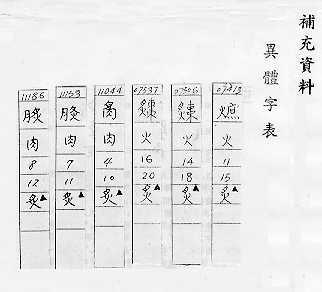 補充資料
異體字表
07413
火
11
15
炙▲
07506
火
14
18
炙▲
07537
火
16
20
炙▲
11044
肉
4
10
炙▲
11153
肉
7
11
炙▲
11186
肉
8
12
炙▲